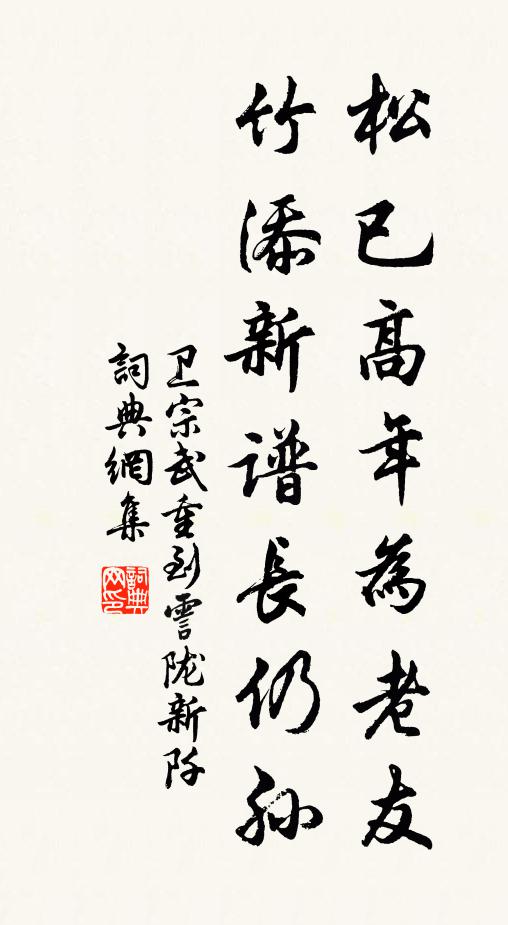 松已高年為老友
竹添新谱長仍孙
卫宗武重到霅陇新阡
詞典網集
詞典网印